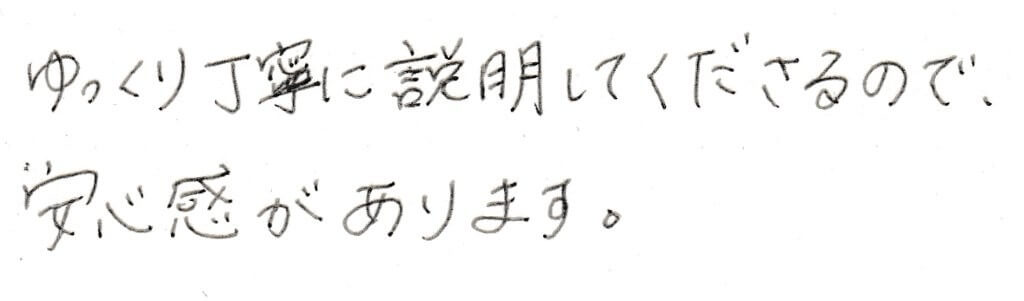 ゆっくり丁寧に説明してくださるので、
安心感があります。